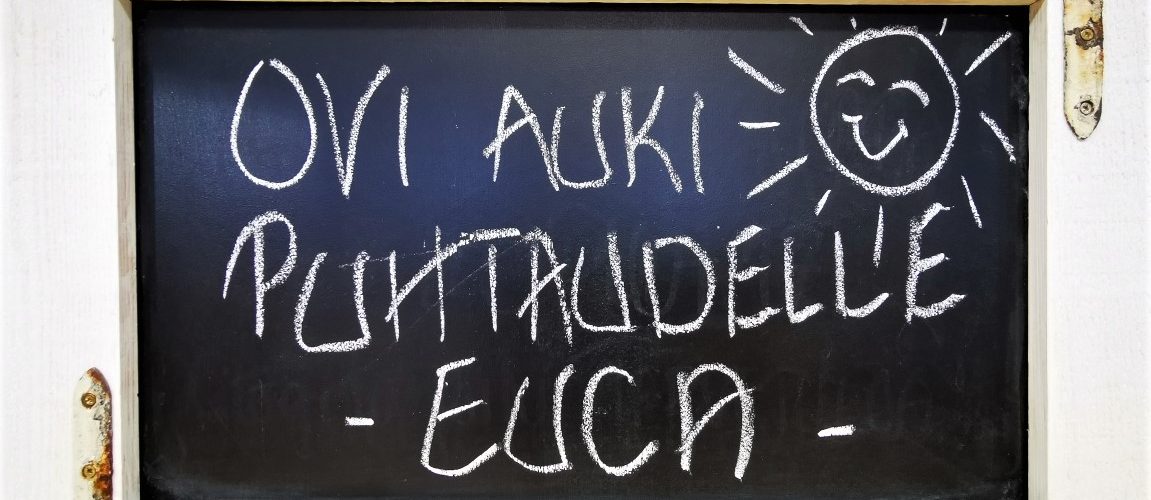 OVI AUKI
PUHTAUDELLE
- EUCA -